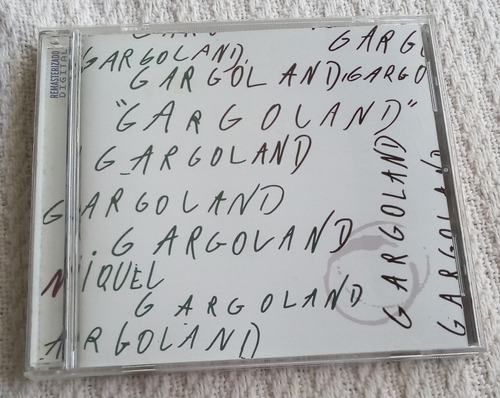 REMASTERIZADO
DIGITAL
GARGO
GARGOLAND,
GARGOLAND,GARGO
"GARGOLAND"
GARGOLAND
GARGOLAND
.GARGOLAND
MIQUEL
GARGOLAND
ARGOLAND
GARGO
GARGOLAND
GARGOLAND